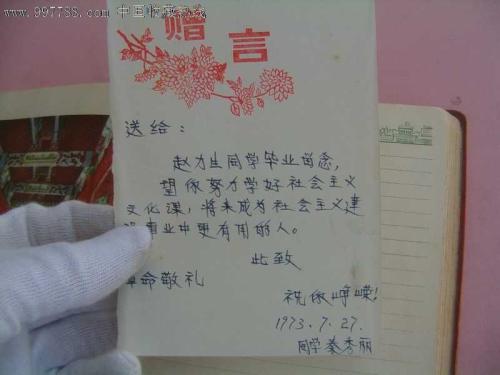 www.997788.com 中国收藏热线
赠言
送给：
赵力生同学毕业留念，
望你努力学好社会主义
文化课，将来成为社会主义建
设事业中更有用的人。
此致
革命敬礼
祝你峥嵘！
1973.7.27.
同学秦秀丽